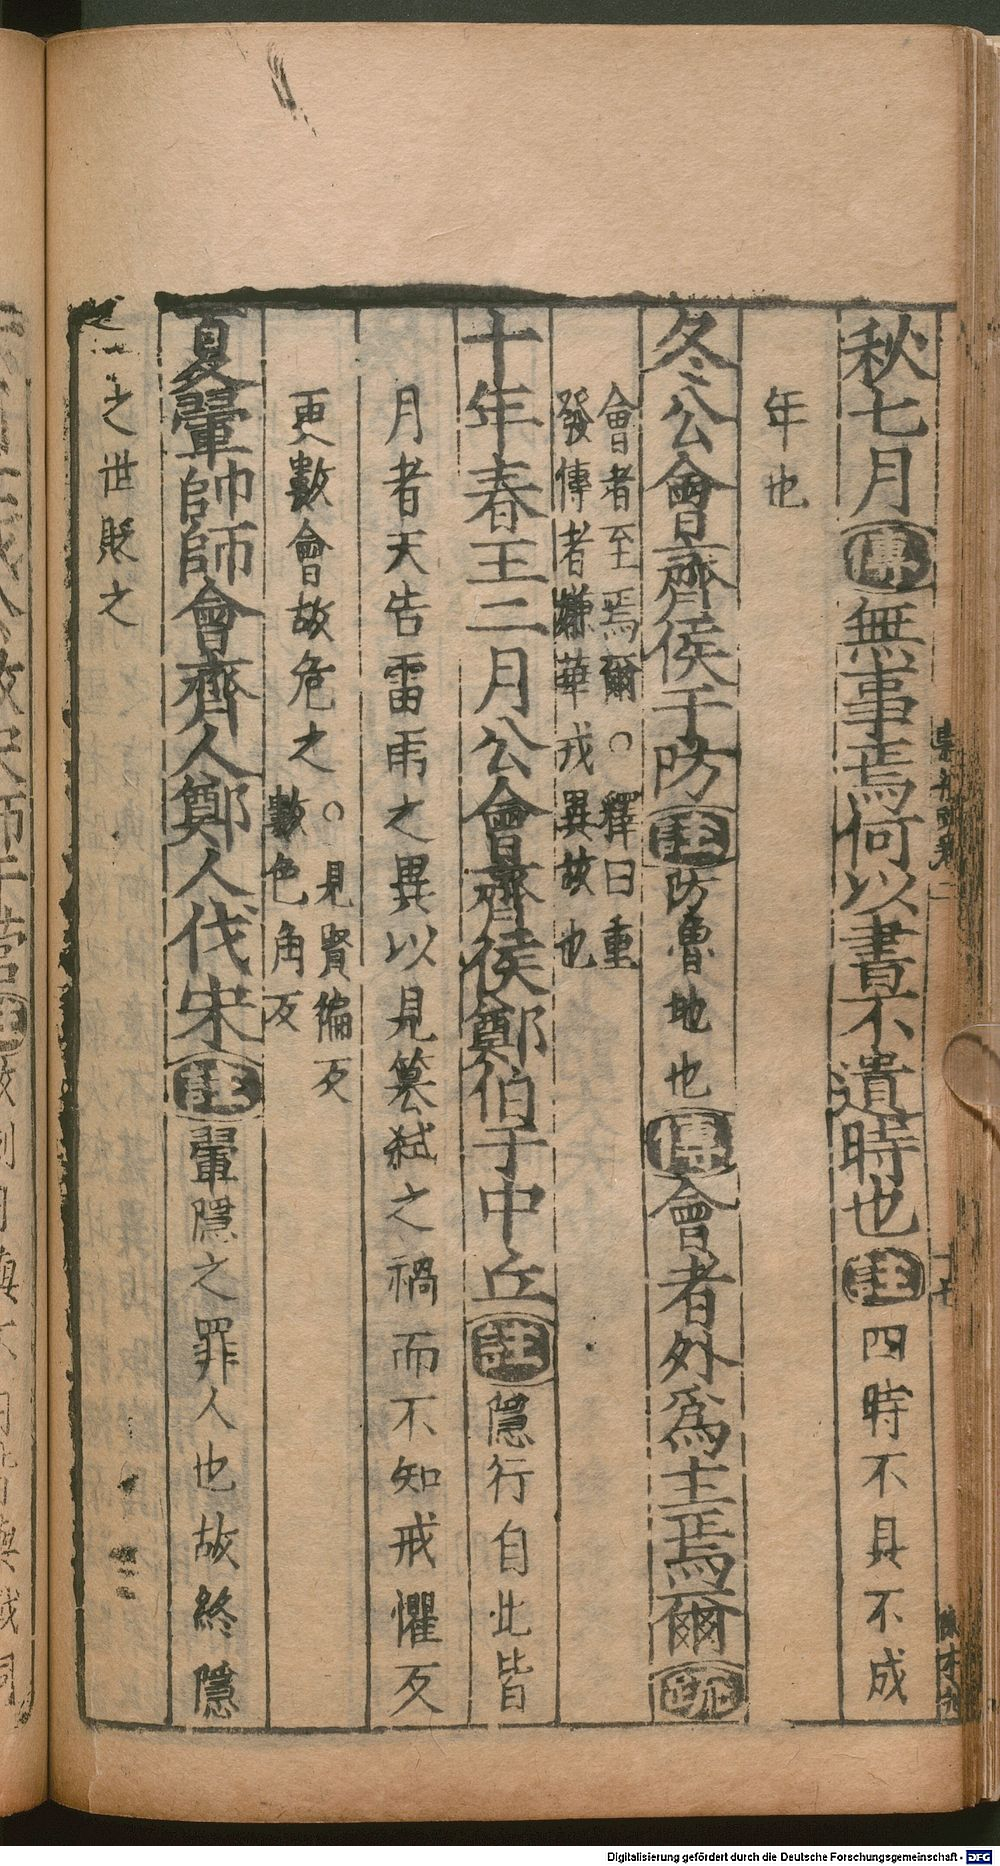 秋七月傳無事焉何以書不遺時也註四時不具不成
年也
冬公會齊侯于防註防魯地也傳會者外爲主焉爾疏
會者至焉爾○釋曰重
發傳者嫌華戎異故也
十年春王二月公會齊侯鄭伯于中丘註隱行自此皆
月者天告雷雨之異以見篡弑之禍而不知戒懼反
更數會故危之○見賢徧反
數色角反
夏翬帥師會齊人鄭人伐宋註翬隱之罪人也故終隱
之世貶之
Digitalisierung gefördert durch die Deutsche Forschungsgemeinschaft - DFG